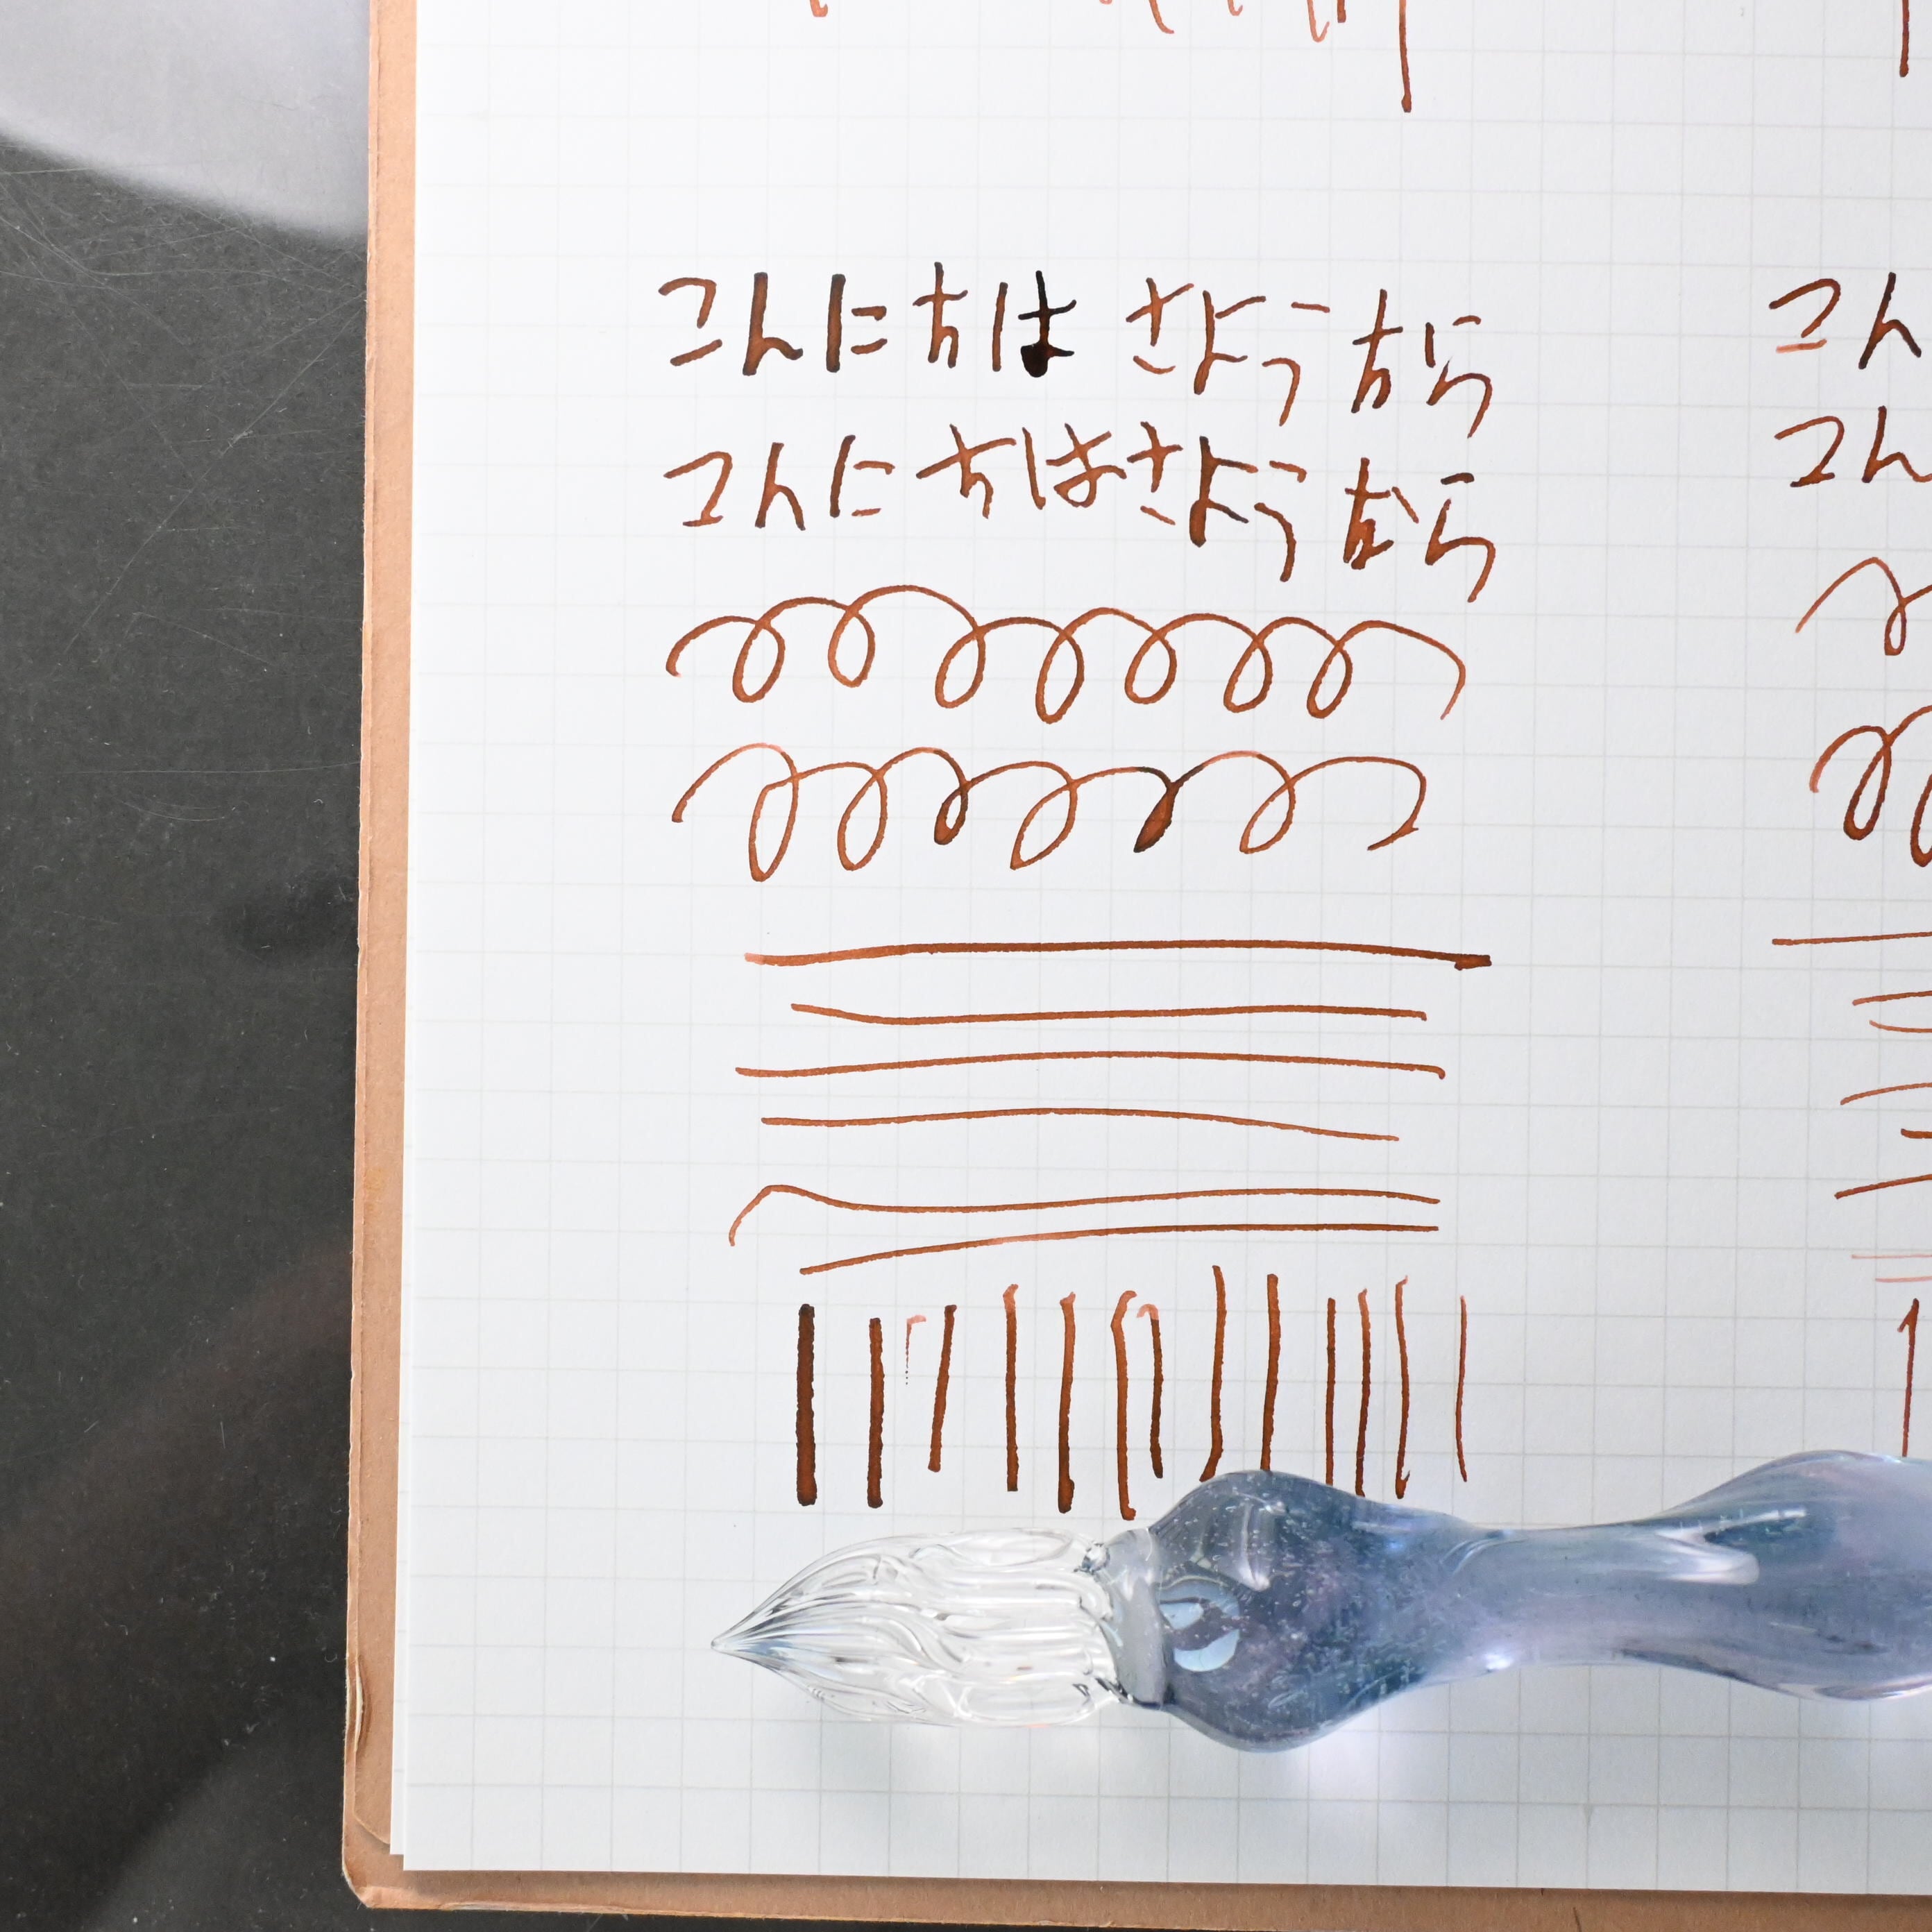 こんにちは さようなら
こん
こんにちはさようなら
こん